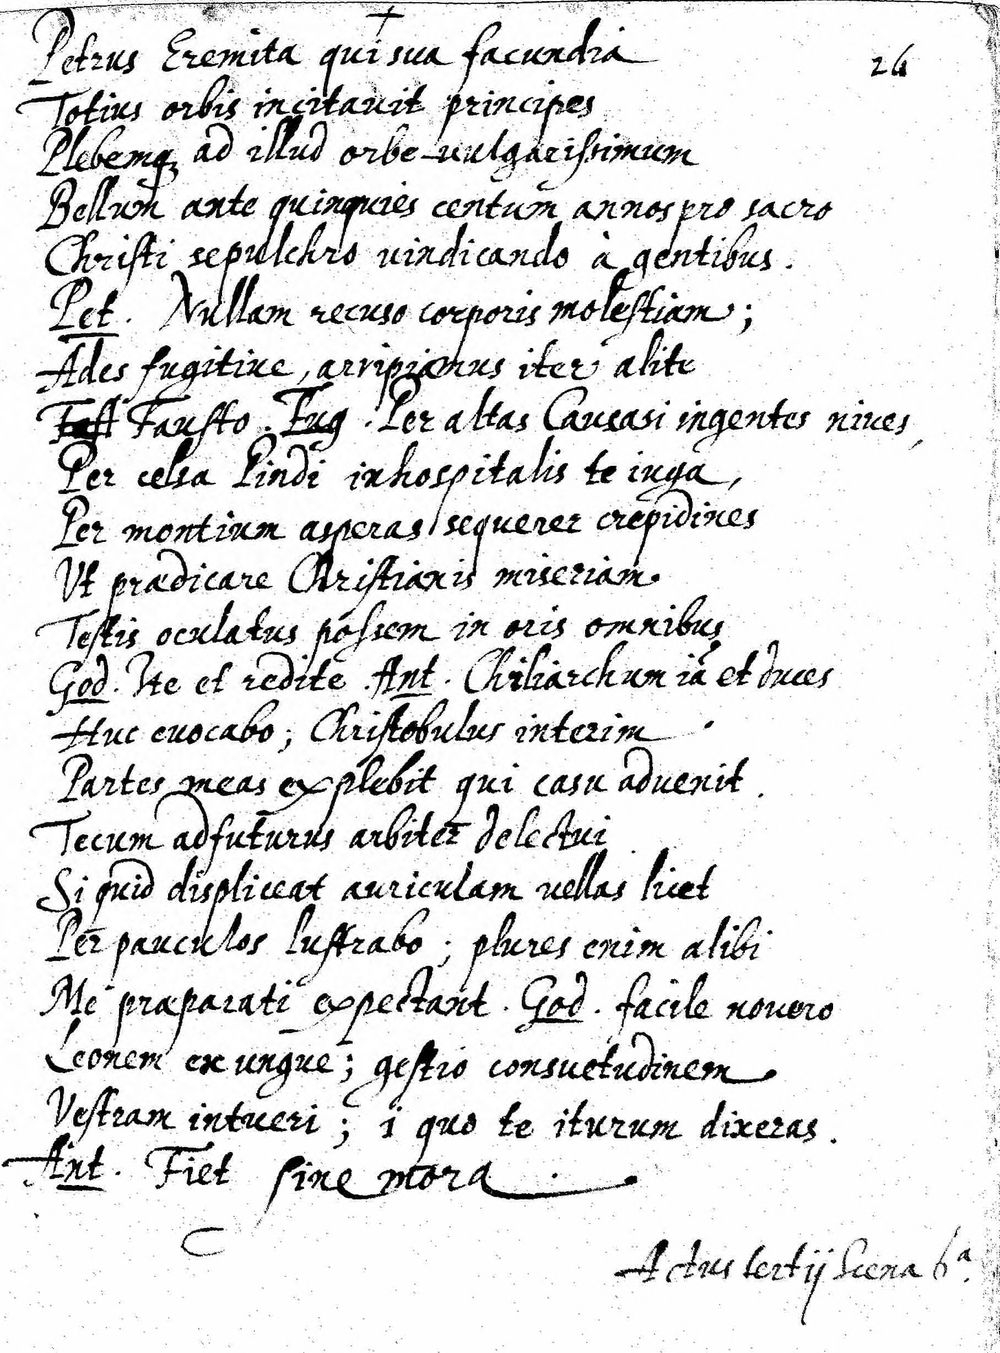 Petrus Eremita qui sua facundia
24
Totius orbis incitauit principes
Plebemq3 ad illud orbe uulgarissimum
Bellum ante quinquies centum annos pro sacro
Christi sepulchro uindicando à gentibus.
Pet. Nullam recuso corporis molestiam;
Ades fugitiue, arripiamus iter alite
Fausto. Fug. Per altas Causasi ingentes niues,
Per celsa Pindi inhospitalis te iuga,
Per montium asperas sequerer crepidines
Vt prædicare Christianis miseriam
Testis oculatus possem in oris omnibus
God. Ite et redite. Ant. Chiliarchum iā et duces
Huc euocabo; Christobulus interim
Partes meas explebit qui casu aduenit.
Tecum adfuturus arbiter delectui
Si quid displiceat auriculam uellas licet
Per pauculos lustrabo; plures enim alibi
Me præparati expectant. God. facile nouero
Leonem ex ungue; gestio consuetudinem
Vestram intueri; i quo te iturum dixeras.
Ant. Fiet sine mora
Actus tertij Scena 6ª.